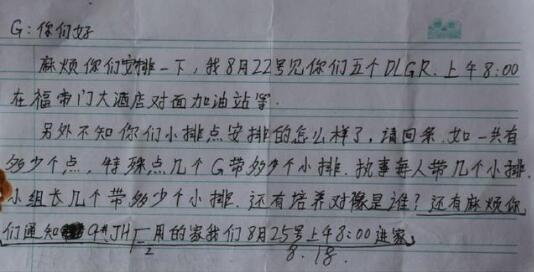 G:你们好
麻烦你们安排一下,我8月22号见你们五个DLGR.上午8:00
在福帝门大酒店对面加油站等.
另外不知你们小排点安排的怎么样了,请回条.如一共有
多少个点,特殊点几个G带多少个小排.执事每人带几个小排.
小组长几个带多少个小排.还有培养对像是谁?还有麻烦你
们通知 JH 用的家我们8月25号上午8:00进家.
8.18.